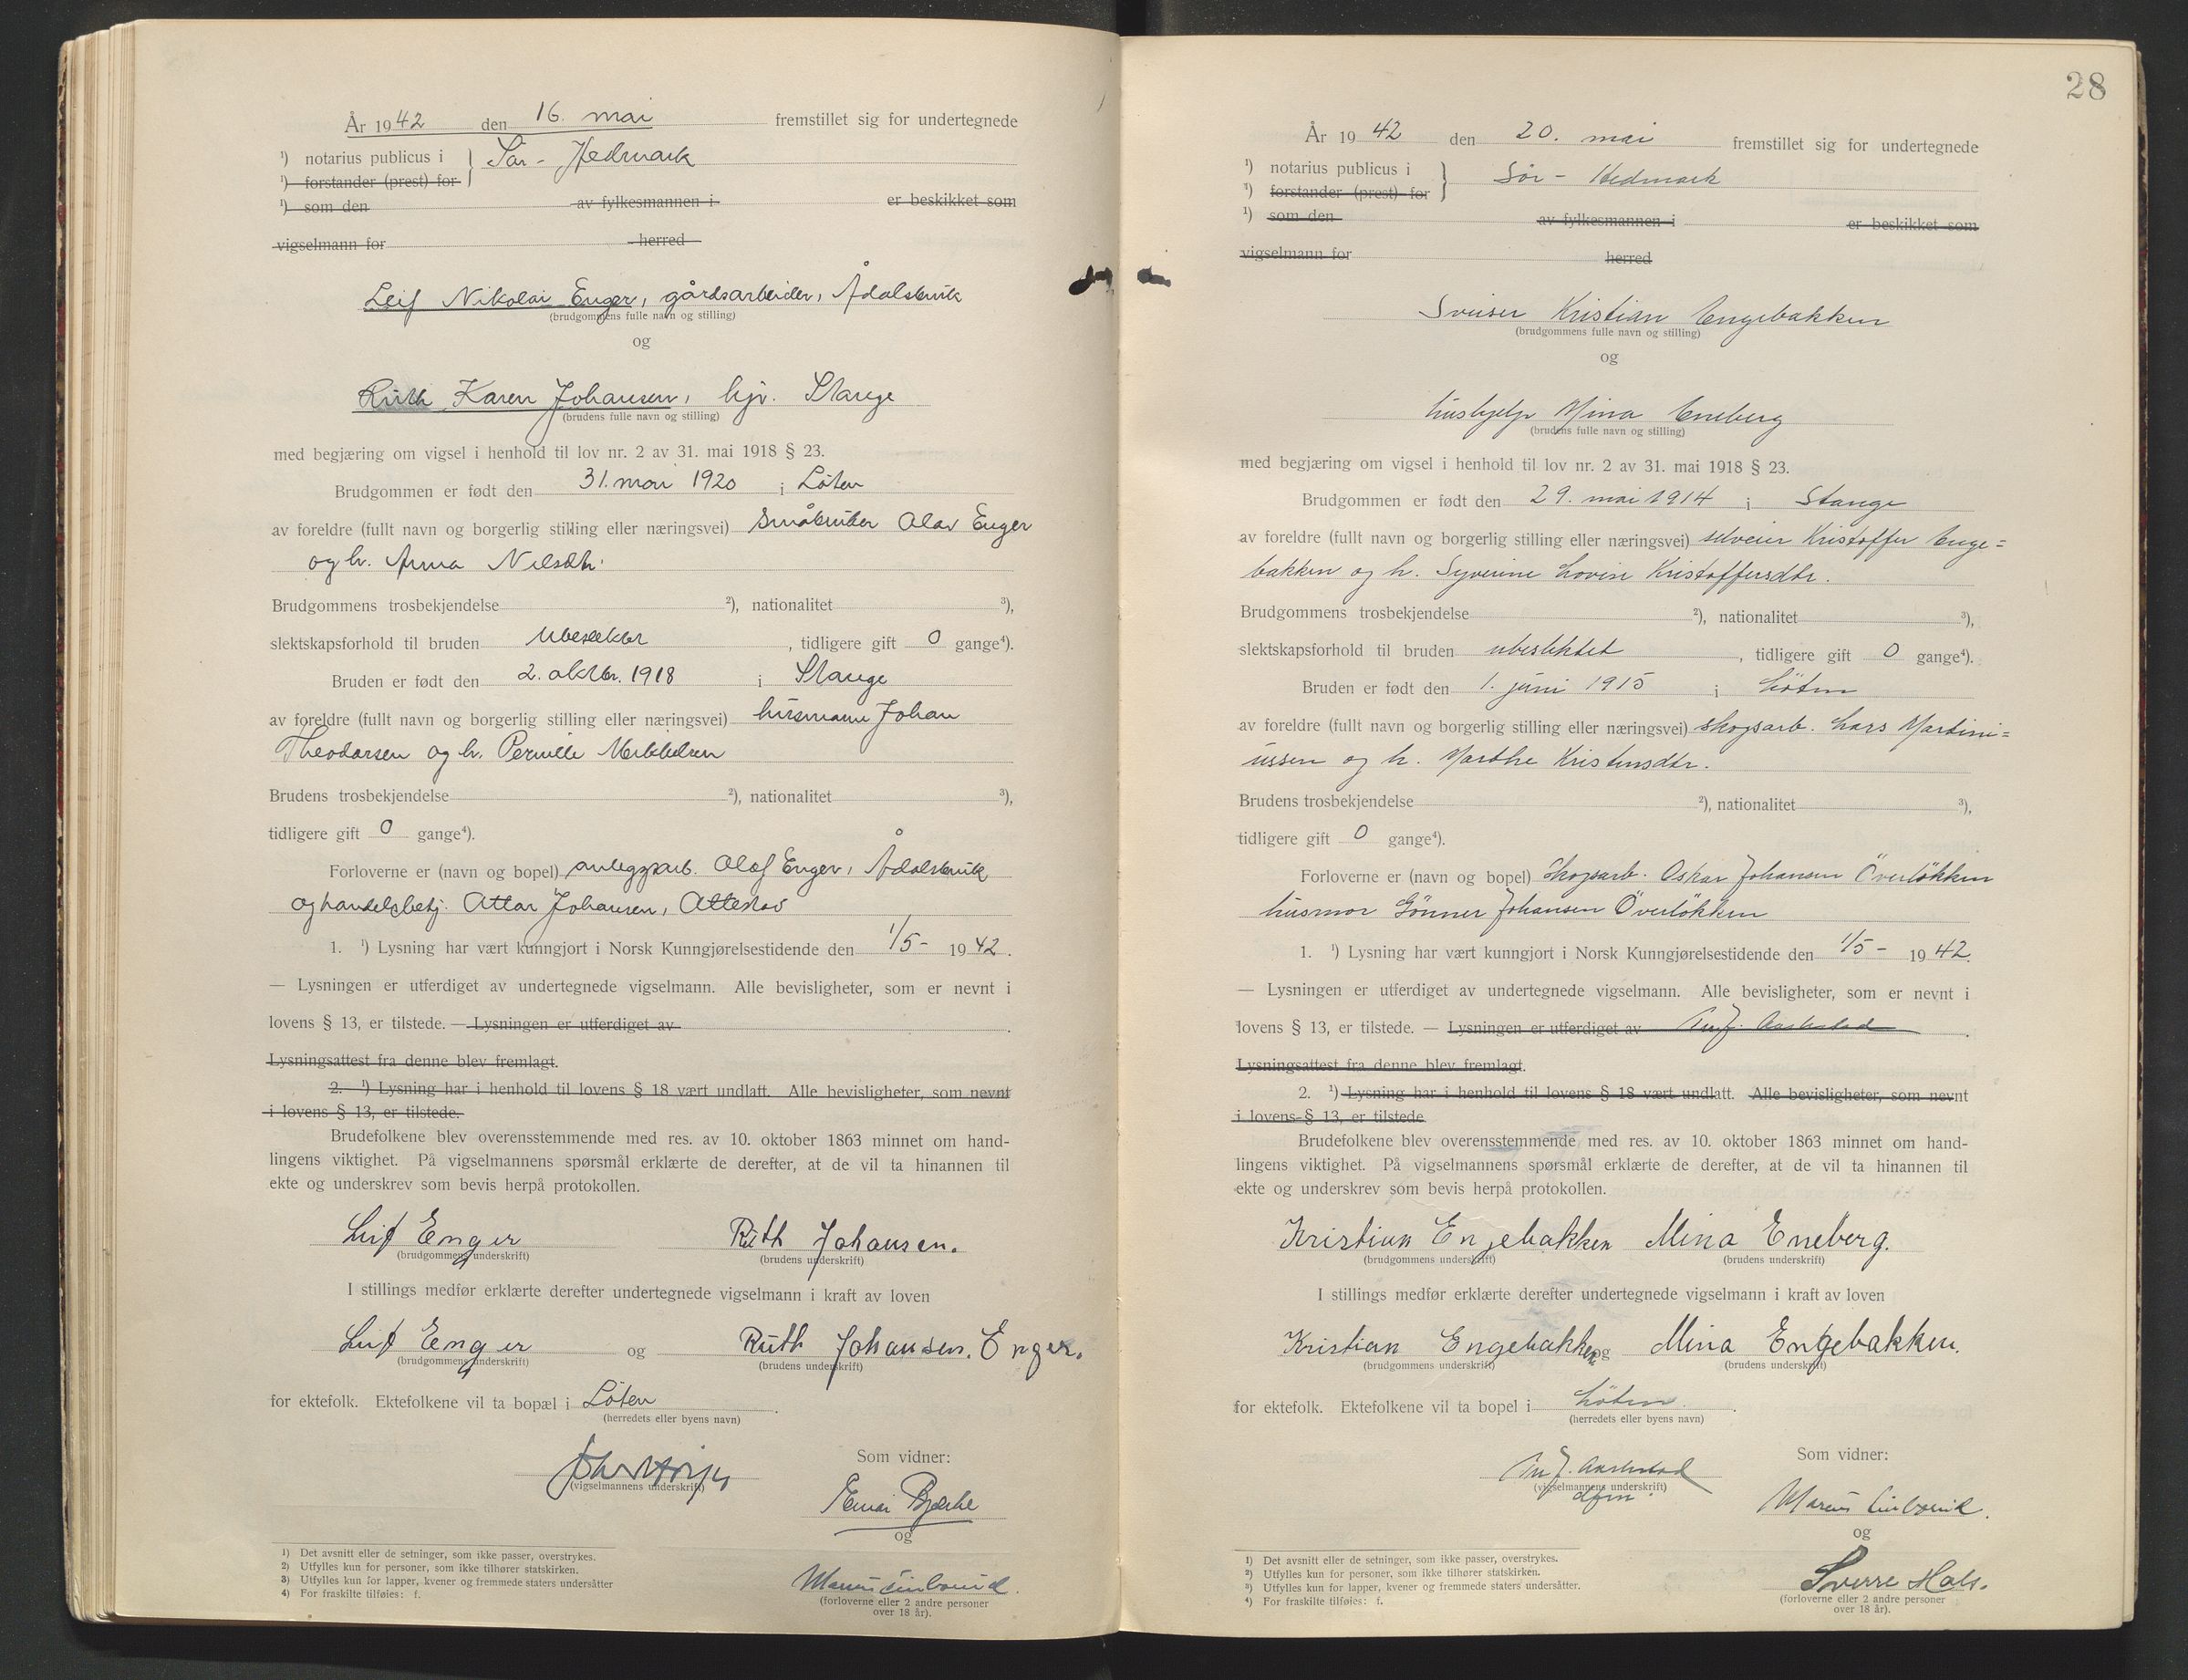 År 1942 den 16. mai fremstillet sig for undertegnede
¹) notarius publicus i } Sør-Hedmark
¹) forstander (prest) for
¹) som den av fylkesmannen i er beskikket som
vigselmann for herred
Leif Nikolai Enger, gårdsarbeider, Ådalsbruk
(brudgommens fulle navn og stilling)
og
Ruth Karen Johansen, hjv. Stange
(brudens fulle navn og stilling)
med begjæring om vigsel i henhold til lov nr. 2 av 31. mai 1918 § 23.
Brudgommen er født den 31. mai 1920 i Löten
av foreldre (fullt navn og borgerlig stilling eller næringsvei) småbruker Olav Enger
og h. Anna Nilsdtr.
Brudgommens trosbekjendelse ²), nationalitet ³),
slektskapsforhold til bruden ubeslektet, tidligere gift 0 gange⁴).
Bruden er født den 2. oktbr. 1918 i Stange
av foreldre (fullt navn og borgerlig stilling eller næringsvei) husmann Johan
Theodorsen og h. Pernille Mikkelsen
Brudens trosbekjendelse ²), nationalitet ³),
tidligere gift 0 gange⁴).
Forloverne er (navn og bopel) anleggsarb. Olaf Enger, Ådalsbruk
og handelsbetj. Attar Johansen,
1. ¹) Lysning har vært kunngjort i Norsk Kunngjørelsestidende den 1/5- 1942.
— Lysningen er utferdiget av undertegnede vigselmann. Alle bevisligheter, som er nevnt i
lovens § 13, er tilstede. — Lysningen er utferdiget av .
Lysningsattest fra denne blev fremlagt.
2. ¹) Lysning har i henhold til lovens § 18 vært undlatt. Alle bevisligheter, som nevnt
i lovens § 13, er tilstede.
Brudefolkene blev overensstemmende med res. av 10. oktober 1863 minnet om hand-
lingens viktighet. På vigselmannens spørsmål erklærte de derefter, at de vil ta hinannen til
ekte og underskrev som bevis herpå protokollen.
Leif Enger Ruth Johansen.
(brudgommens underskrift) (brudens underskrift)
I stillings medfør erklærte derefter undertegnede vigselmann i kraft av loven
Leif Enger og Ruth Johansen. Enger.
(brudgommens underskrift) (brudens underskrift)
for ektefolk. Ektefolkene vil ta bopæl i Löten.
(herredets eller byens navn)
Som vidner:
(vigselmannens underskrift)
og
Marius
(forloverne eller 2 andre personer
over 18 år).
¹) Det avsnitt eller de setninger, som ikke passer, overstrykes.
²) Utfylles kun for personer, som ikke tilhører statskirken.
³) Utfylles kun for lapper, kvener og fremmede staters undersåtter
⁴) For fraskilte tilføies: f.
28
År 1942 den 20. mai fremstillet sig for undertegnede
¹) notarius publicus i } Sör-Hedmark
¹) forstander (prest) for
¹) som den av fylkesmannen i er beskikket som
vigselmann for herred
Sveiser Kristian Engebakken
(brudgommens fulle navn og stilling)
og
hushjelp Mina Eneberg
(brudens fulle navn og stilling)
med begjæring om vigsel i henhold til lov nr. 2 av 31. mai 1918 § 23.
Brudgommen er født den 29. mai 1914 i Stange
av foreldre (fullt navn og borgerlig stilling eller næringsvei) selveier Kristoffer Enge=
bakken og h. Syverine Lovise Kristoffersdtr.
Brudgommens trosbekjendelse ²), nationalitet ³),
slektskapsforhold til bruden ubeslektet, tidligere gift 0 gange⁴).
Bruden er født den 1. juni 1915 i Löten
av foreldre (fullt navn og borgerlig stilling eller næringsvei) skogsarb. Lars Martini=
ussen og h. Marthe Kristensdtr.
Brudens trosbekjendelse ²), nationalitet ³),
tidligere gift 0 gange⁴).
Forloverne er (navn og bopel) skogsarb. Oskar Johansen Överlökken
husmor Gönner Johansen Överlökken
1. ¹) Lysning har vært kunngjort i Norsk Kunngjørelsestidende den 1/5- 1942.
— Lysningen er utferdiget av undertegnede vigselmann. Alle bevisligheter, som er nevnt i
lovens § 13, er tilstede. — Lysningen er utferdiget av .
Lysningsattest fra denne blev fremlagt.
2. ¹) Lysning har i henhold til lovens § 18 vært undlatt. Alle bevisligheter, som nevnt
i lovens § 13, er tilstede
Brudefolkene blev overensstemmende med res. av 10. oktober 1863 minnet om hand-
lingens viktighet. På vigselmannens spørsmål erklærte de derefter, at de vil ta hinannen til
ekte og underskrev som bevis herpå protokollen.
Kristian Engebakken Mina Eneberg.
(brudgommens underskrift) (brudens underskrift)
I stillings medfør erklærte derefter undertegnede vigselmann i kraft av loven
Kristian Engebakken og Mina Engebakken.
(brudgommens underskrift) (brudens underskrift)
for ektefolk. Ektefolkene vil ta bopel i Löten.
(herredets eller byens navn)
Som vidner:
(vigselmannens underskrift)
dfm.
Marius
og
Sverre Hals.
(forloverne eller 2 andre personer
over 18 år).
¹) Det avsnitt eller de setninger, som ikke passer, overstrykes.
²) Utfylles kun for personer, som ikke tilhører statskirken.
³) Utfylles kun for lapper, kvener og fremmede staters undersåtter.
⁴) For fraskilte tilføies: f.